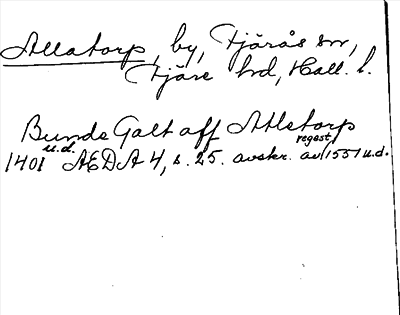 Allatorp, by, Tjärås sn,
Fjäre hd, Hall. l.
Bunde Galt aff Atletorp
1401 u.d. AEDA 4, s. 25. avskr. av regest 1551 u.d.